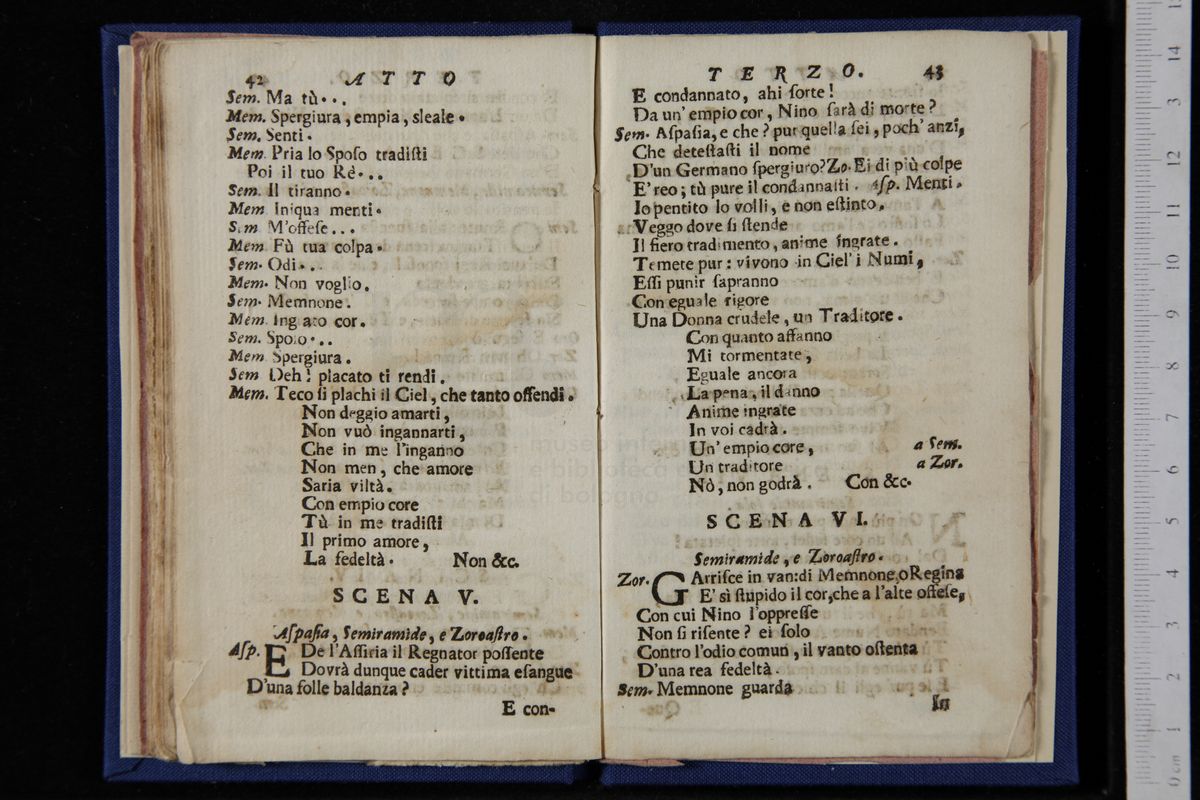 42 ATTO
Sem. Ma tù...
Mem. Spergiura, empia, sleale.
Sem. Senti.
Mem. Pria lo Sposo tradisti
Poi il tuo Rè...
Sem. Il tiranno.
Mem. Iniqua menti.
Sem. M'offese...
Mem. Fù tua colpa.
Sem. Odi...
Mem. Non voglio.
Sem. Memnone.
Mem. Ingrato cor.
Sem. Sposo...
Mem. Spergiura.
Sem. Deh! placato ti rendi.
Mem. Teco si plachi il Ciel, che tanto offendi.
Non deggio amarti,
Non vuò ingannarti,
Che in me l'inganno
Non men, che amore
Saria viltà.
Con empio core
Tù in me tradisti
Il primo amore,
La fedeltà. Non &c.
SCENA V.
Aspasia, Semiramide, e Zoroastro.
Asp. E De l'Assiria il Regnator possente
Dovrà dunque cader vittima esangue
D'una folle baldanza?
E con-
TERZO. 43
E condannato, ahi sorte!
Da un' empio cor, Nino sarà di morte?
Sem. Aspasia, e che? pur quella sei, poch' anzi,
Che detestasti il nome
D'un Germano spergiuro? Zo. Ei di più colpe
E' reo; tù pure il condannasti. Asp. Menti.
Io pentito lo volli, e non estinto.
Veggo dove si stende
Il fiero tradimento, anime ingrate.
Temete pur: vivono in Ciel' i Numi,
Essi punir sapranno
Con eguale rigore
Una Donna crudele, un Traditore.
Con quanto affanno
Mi tormentate,
Eguale ancora
La pena, il danno
Anime ingrate
In voi cadrà.
Un' empio core, a Sem.
Un traditore a Zor.
Nò, non godrà. Con &c.
SCENA VI.
Semiramide, e Zoroastro.
Zor. GArrisce in van: di Memnone, o Regina
E' sì stupido il cor, che a l'alte offese,
Con cui Nino l'oppresse
Non si risente? ei solo
Contro l'odio comun, il vanto ostenta
D'una rea fedeltà.
Sem. Memnone guarda
In
museo
e biblioteca
di bologna